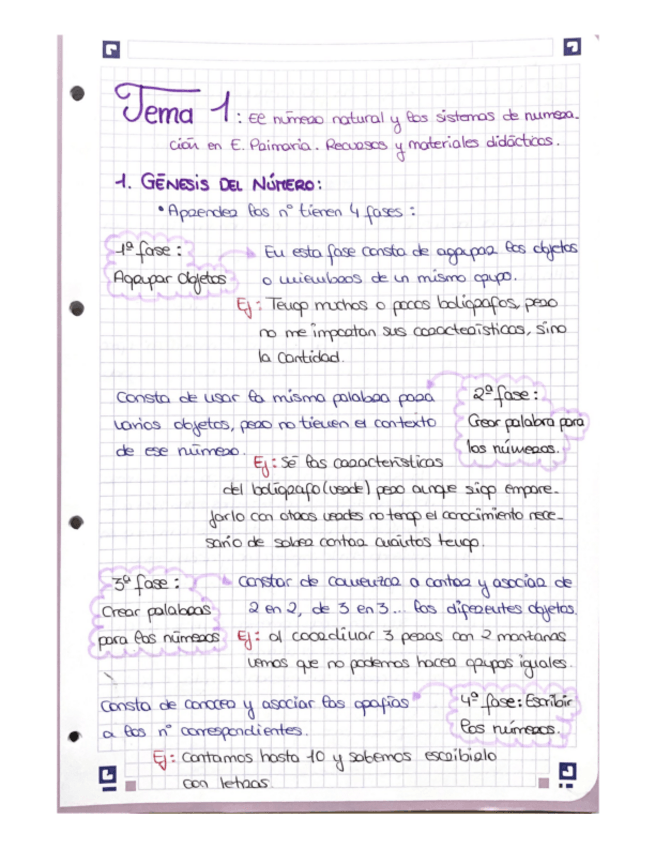 Tema 1: El número natural y los sistemas de numera-
ción en E. Primaria. Recursos y materiales didácticos.
1. GÉNESIS DEL NÚMERO:
• Aprender los nº tienen 4 fases:
1ª fase:
Agrupar Objetos
En esta fase consta de agrupar los objetos
o miembros de un mismo grupo.
Ej: Tengo muchos o pocos bolígrafos, pero
no me importan sus características, sino
la cantidad.
2ª fase:
Crear palabra para
los números.
Consta de usar la misma palabra para
varios objetos, pero no tienen el contexto
de ese número.
Ej: Sé las características
del bolígrafo (verde) pero aunque siga empare-
jarlo con otros verdes no tengo el conocimiento nece-
sario de saber contar cuántos tengo.
3ª fase:
Crear palabras
para los números
Constar de comenzar a contar y asociar de
2 en 2, de 3 en 3... los diferentes objetos.
Ej: al coordinar 3 peras con 2 manzanas
vemos que no podemos hacer grupos iguales.
4ª fase: Escribir
los números.
Consta de conocer y asociar las grafías
a los nº correspondientes.
Ej: Contamos hasta 10 y sabemos escribirlo
con letras